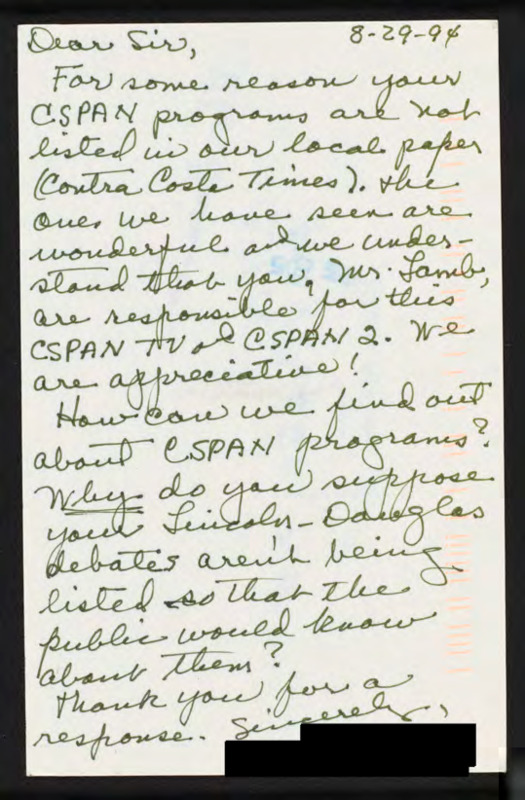 Dear Sir, 8-29-94
For some reason your
CSPAN programs are not
listed in our local paper
(Contra Costa Times). The
ones we have seen are
wonderful and we under-
stand that you, Mr. Lamb,
are responsible for this
CSPAN TV and CSPAN 2. We
are appreciative!
How can we find out
about CSPAN programs?
Why do you suppose
your Lincoln-Douglas
debates aren't being
listed so that the
public would know
about them?
Thank you for a
response. Sincerely,